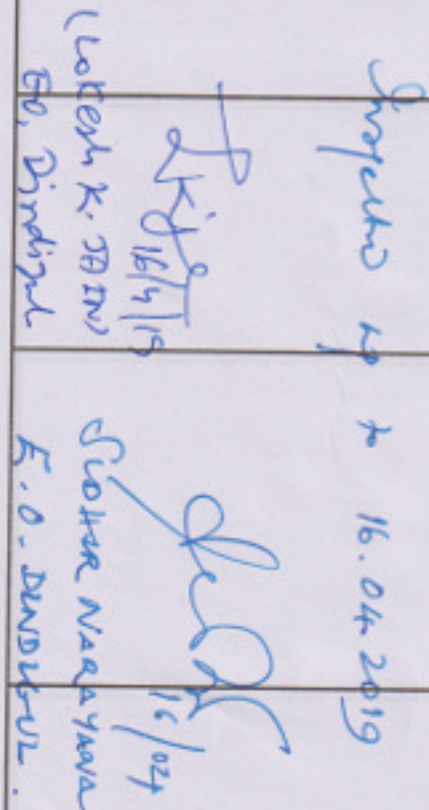 Inspection up to 16.04.2019
16/4/19
(Lokesh K. JAIN)
EO, Dindigul
16/04
SIDHAR NARAYANA
E.O - DINDIGUL.